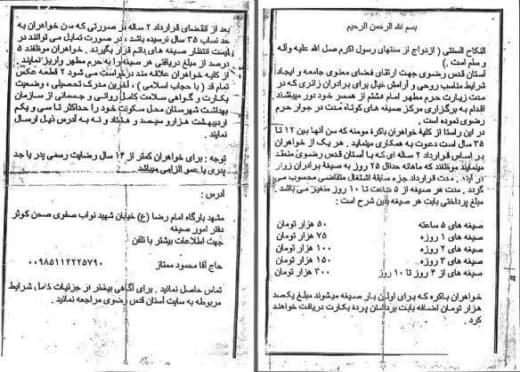 بسم الله الرحمن الرحیم
النکاح السنتی ( ازدواج از سنتهای رسول اکرم صل الله علیه وآله
و سلم است . )
آستان قدس رضوی جهت ارتقای فضای معنوی جامعه و ایجاد
شرایط مناسب روحی و آرامش خیال برای برادران زائری که در
مدت زیارت حرم مطهر امام هشتم از همسر خود دور میباشند
اقدام به برگزاری مرکز صیغه های کوتاه مدت در جوار حرم
رضوی نموده است .
در این راستا از کلیه خواهران باکره مومنه که سن آنها بین ۱۲ تا
۳۵ سال است دعوت به همکاری مینماید . هر یک از خواهران
بر اساس قرارداد ۲ ساله ای که با آستان قدس رضوی منعقد
مینمایند موظفند که ماهانه حداقل ۲۵ روز به صیغه برادران زوار
در آیند . مدت قرارداد جزء سابقه اشتغال متقاضی محسوب می
گردد . مدت هر صیغه از ۵ ساعت تا ۱۰ روز متغیر می باشد .
مبلغ پرداختی بابت هر صیغه بدین شرح است :
صیغه های ۵ ساعته ۵۰ هزار تومان
صیغه های ۱ روزه ۷۵ هزار تومان
صیغه های ۲ روزه ۱۰۰ هزار تومان
صیغه های ۳ روزه ۱۵۰ هزار تومان
صیغه های از ۴ روز تا ۱۰ روز ۳۰۰ هزار تومان
خواهران باکره که برای اولین بار صیغه میشوند مبلغ یکصد
هزار تومان اضافه بابت برداشتن پرده بکارت دریافت خواهند
کرد .
بعد از انقضای قرارداد ۲ ساله در صورتی که سن خواهران به
حد نصاب ۳۵ سال نرسیده باشد ، در صورت تمایل می توانند در
لیست انتظار صیغه های دائم قرار بگیرند . خواهران موظفند ۵
درصد از مبلغ دریافتی هر صیغه را به حرم مطهر واریز نمایند .
از کلیه خواهران علاقه مند درخواست می شود ۲ قطعه عکس
تمام قد ( با حجاب اسلامی ) ، آخرین مدرک تحصیلی ، وضعیت
بکارت و گواهی سلامت کامل روانی و جسمانی از سازمان
بهداشت شهرستان محل سکونت خود را حداکثر تا سی و یکم
اردیبهشت هزار و سیصد و هشتاد و نه به آدرس ذیل ارسال
نمایند .
توجه : برای خواهران کمتر از ۱۴ سال رضایت رسمی پدر یا جد
پدری یا عمو الزامی میباشد
آدرس :
مشهد بارگاه امام رضا (ع) خیابان شهید نواب صفوی صحن کوثر
دفتر امور صیغه
جهت اطلاعات بیشتر با تلفن
حاج آقا محمود ممتاز ۰۰۹۸۵۱۱۲۲۲۵۷۹۰
تماس حاصل نمائید . برای آگاهی بیشتر از جزئیات کامل شرایط
مربوطه به سایت آستان قدس رضوی مراجعه نمائید .